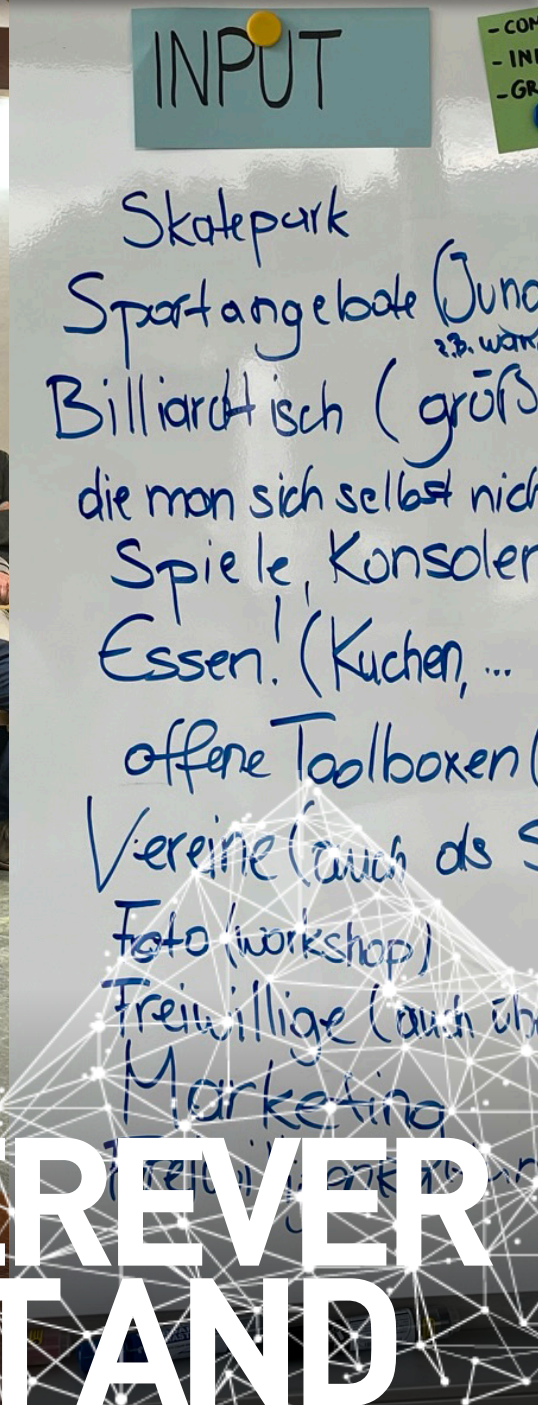 INPUT
- COM
- INF
- GR
Skatepark
Sportangebote (Jung
z.B. 
Billiardtisch ( größ
die man sich selbst nich
Spiele, Konsolen
Essen! (Kuchen, ...
offene Toolboxen (
Vereine (auch als S
Foto (workshop)
Freiwillige (auch üb
Marketing
EREVER
T AND